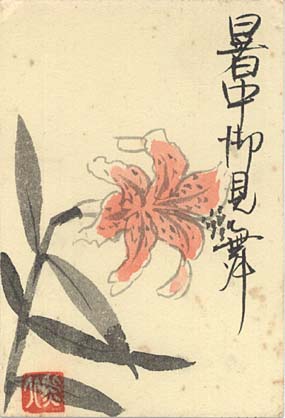 暑中御見舞